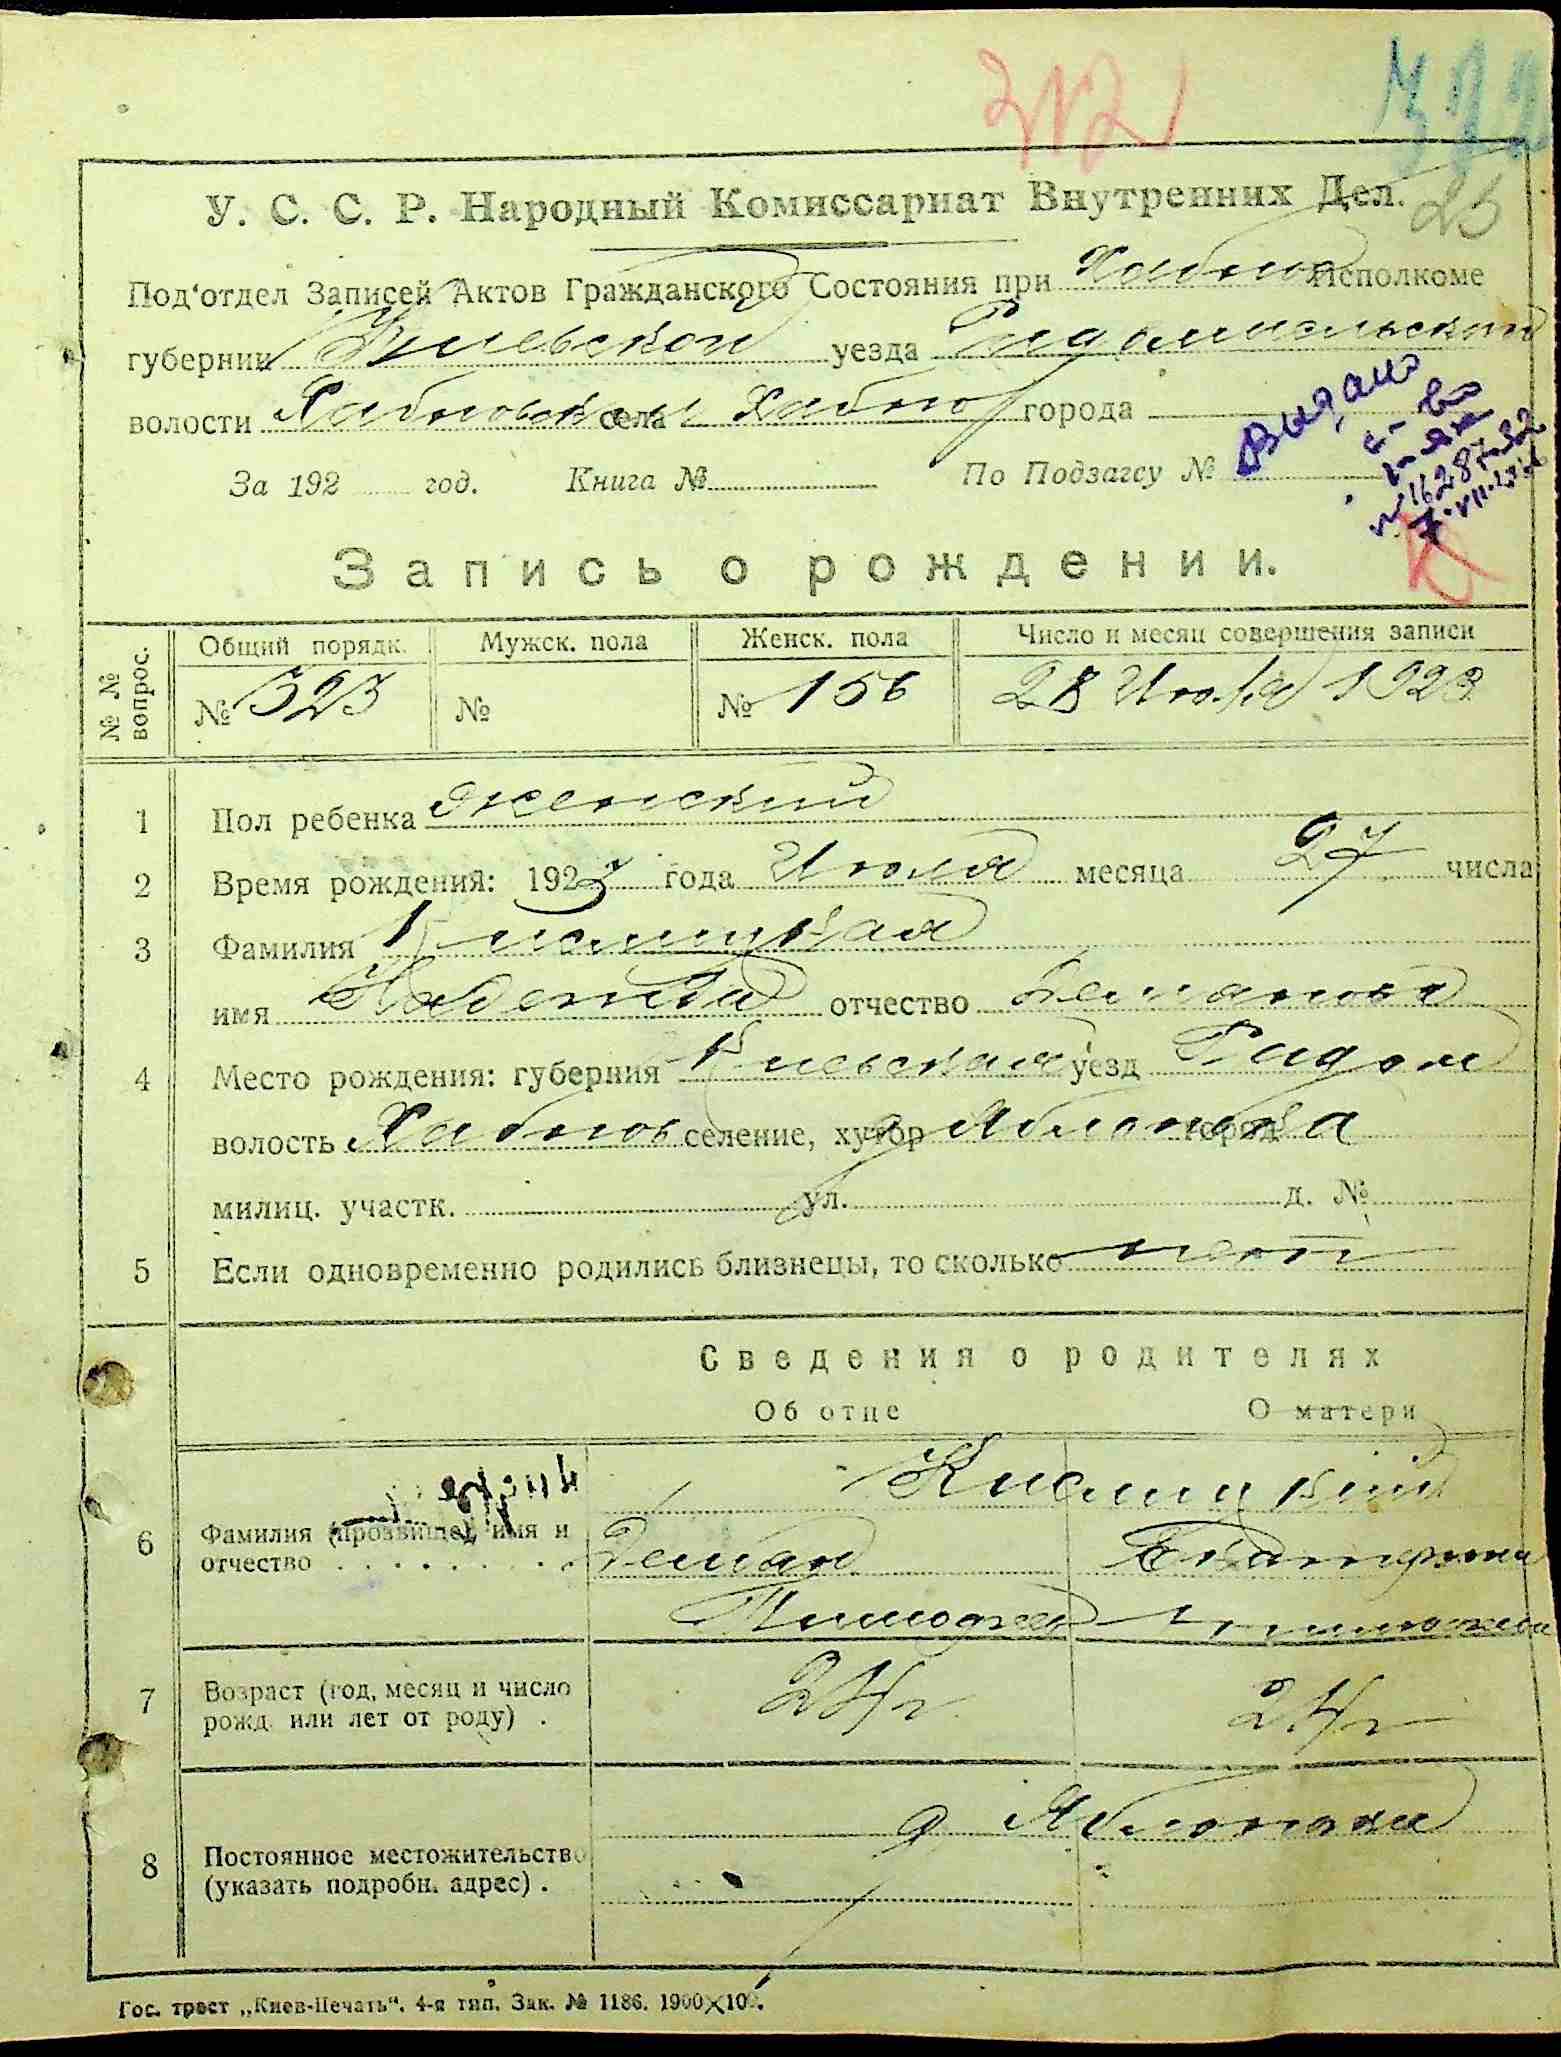 312
322
25
У. С. С. Р. Народный Комиссариат Внутренних Дел.
Под'отдел Записей Актов Гражданского Состояния при Хабном Исполкоме
губернии Киевской уезда Радомисльской
волости Хабновской села Хабно города
Выдано
За 192 год. Книга № По Подзагсу №
Запись о рождении.
№ № вопрос. Общий порядк. Мужск. пола Женск. пола Число и месяц совершения записи
№ 323 № № 156 28 Июля 1923
1 Пол ребенка женский
2 Время рождения: 1923 года Июля месяца 27 числа
3 Фамилия Кислицкая
имя Надежда отчество Демянова
4 Место рождения: губерния Киевская уезд Радом
волость Хабнов селение, хутор д Яблонька город
милиц. участк. ул. д. №
5 Если одновременно родились близнецы, то сколько нет
Сведения о родителях
Об отце О матери
Кислицкий
6 Фамилия (прозвище), имя и
отчество Демьян Екатерина
Тимофеев
7 Возраст (год, месяц и число
рожд. или лет от роду) . 24 г 24 г
д Яблонька
8 Постоянное местожительство
(указать подробн. адрес) .
Гос. трест „Киев-Печать“. 4-я тип. Зак. № 1186. 1900×10